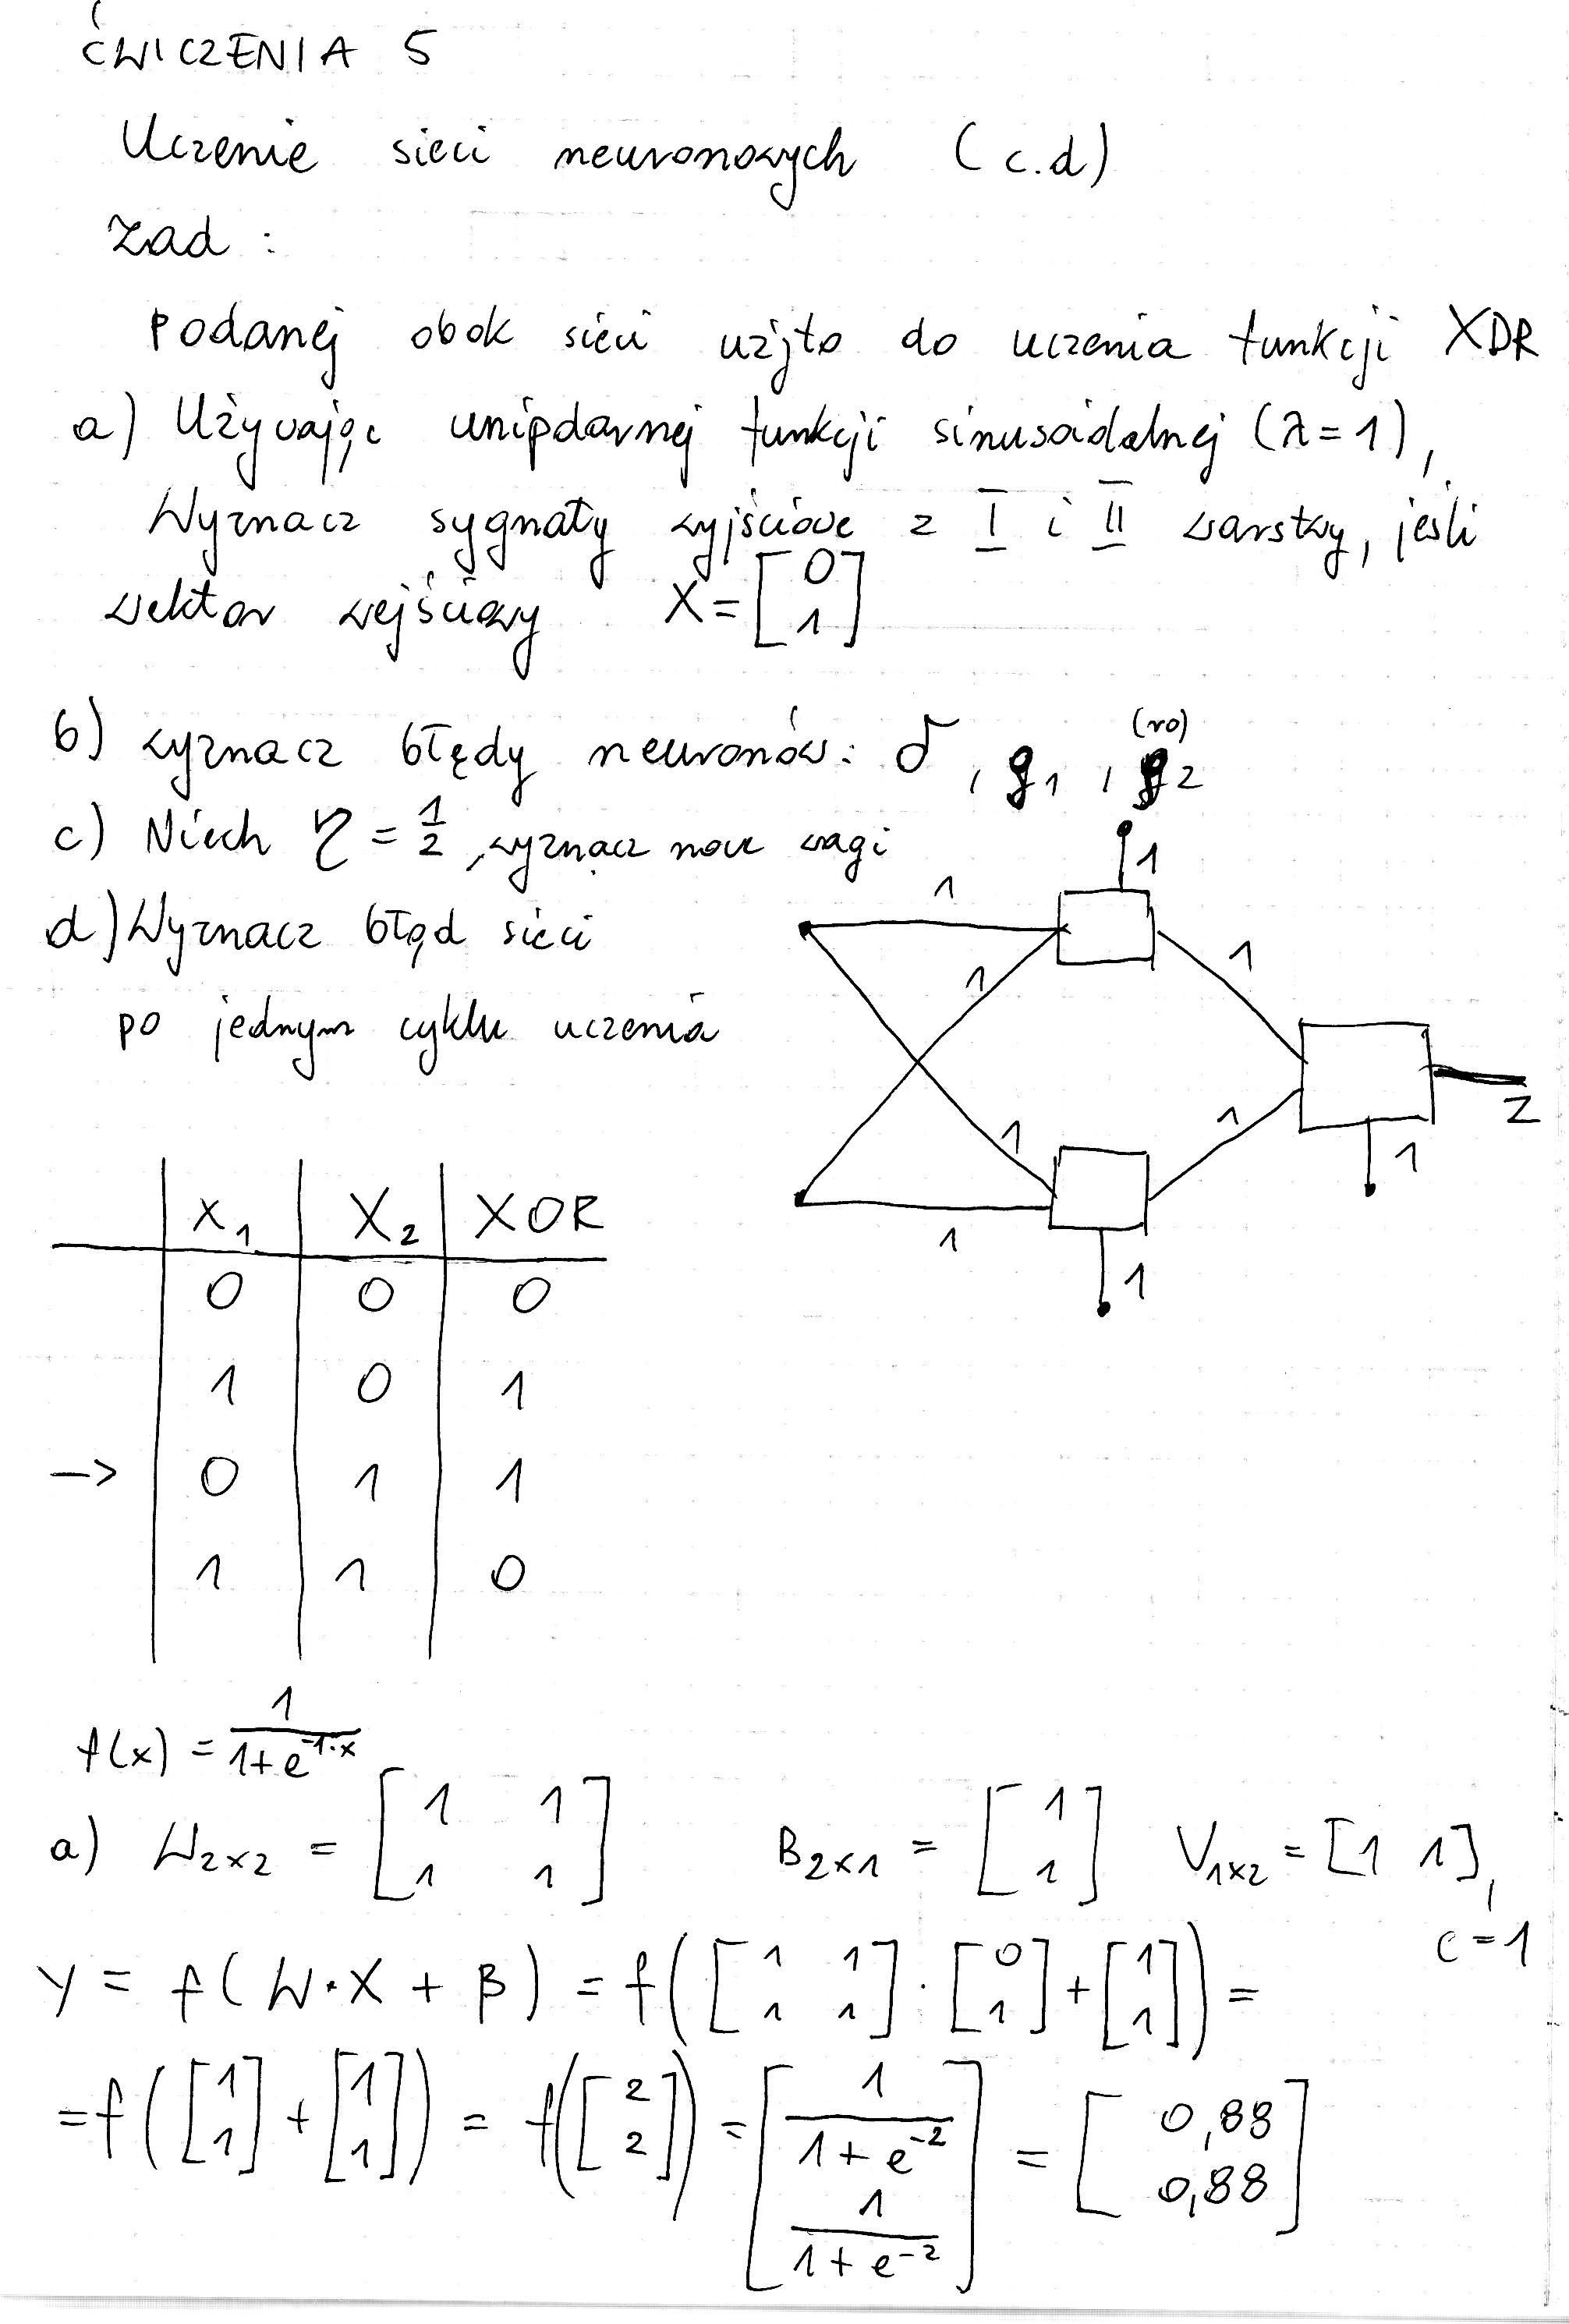 ĆWICZENIA 5
Uczenie sieci neuronowych (c.d)
Zad :
Podanej obok sieci użyto do uczenia funkcji XOR
a) Używając unipolarnej funkcji sinusoidalnej (λ=1),
Wyznacz sygnały wyjściowe z I i II warstwy, jeśli
wektor wejściowy X = [0 1]
b) wyznacz błędy neuronów: δ, g1, g2 (ro)
c) Niech η = 1/2, wyznacz nowe wagi
d) Wyznacz błąd sieci
po jednym cyklu uczenia
1
1
1
1
1
1
1
1
1
z
x1 X2 XOR
0 0 0
1 0 1
-> 0 1 1
1 1 0
f(x) = 1/(1+e^-1·x)
a) W2x2 = [1 1; 1 1] B2x1 = [1; 1] V1x2 = [1 1],
c=1
Y = f(W·X + B) = f([1 1; 1 1]·[0; 1]+[1; 1]) =
= f([1; 1]+[1; 1]) = f([2; 2]) = [1/(1+e^-2); 1/(1+e^-2)] = [0,88; 0,88]